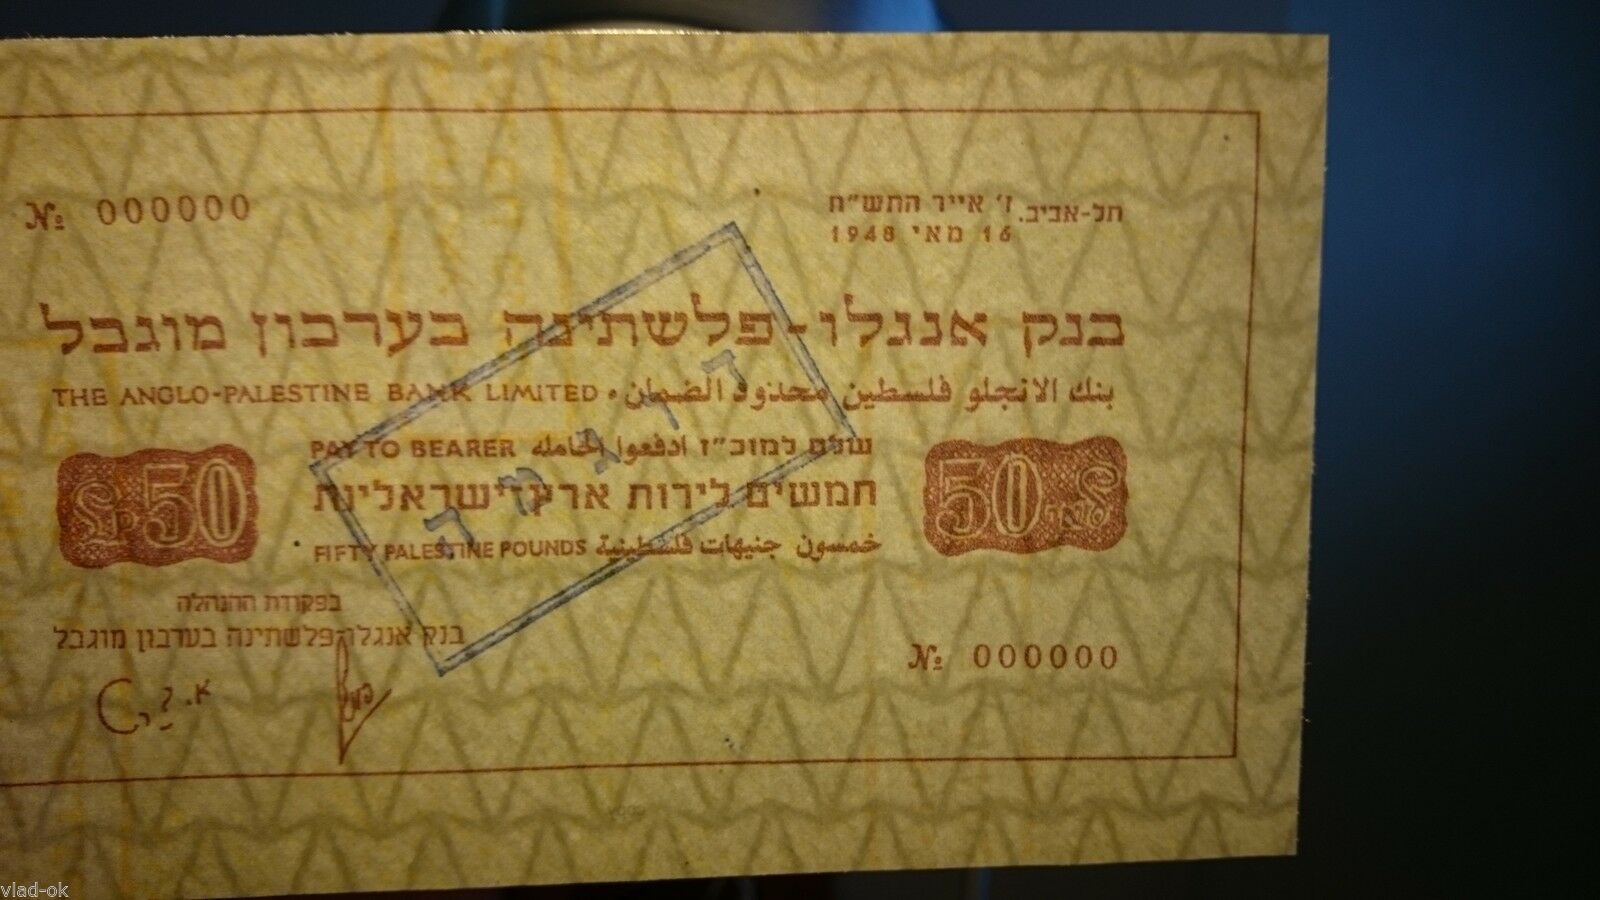 № 000000
תל-אביב. ז' אייר התש"ח
16 מאי 1948
בנק אנגלו-פלשתינה בערבון מוגבל
THE ANGLO-PALESTINE BANK LIMITED • بنك الانجلو فلسطين محدود الضمان
PAY TO BEARER ادفعوا لحامله שלם למוכ"ז
£P 50
חמשים לירות ארץ־ישראליות
50
FIFTY PALESTINE POUNDS خمسون جنيهات فلسطينية
דוגמה
בפקודת ההנהלה
בנק אנגלו-פלשתינה בערבון מוגבל
№ 000000
vlad-ok